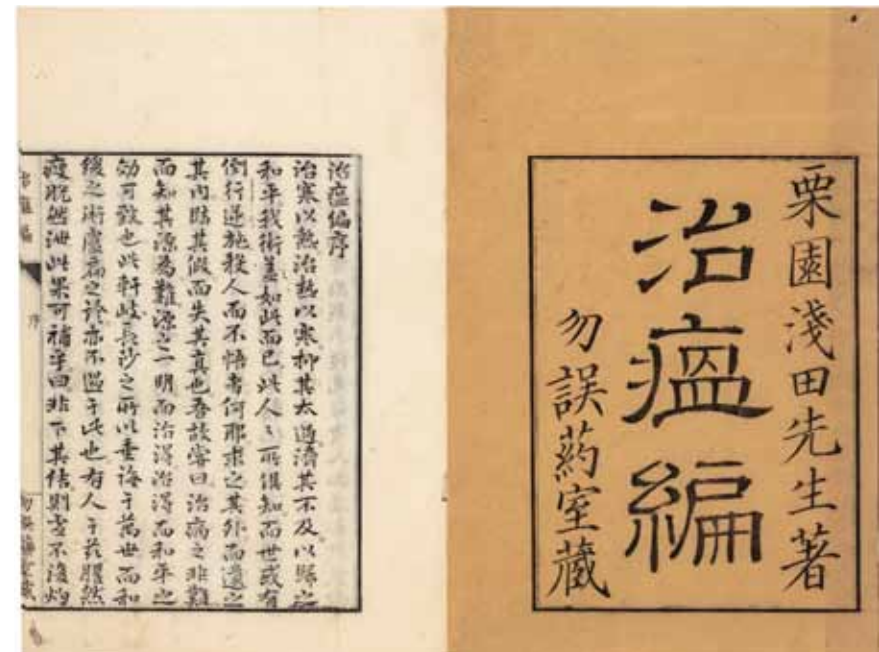 栗園淺田先生著
治瘟編
勿誤葯室藏
治瘟編序
治寒以熱治熱以寒抑其太過濟其不及以歸之
和平我術盖如此而已此人〻所俱知而世或有
倒行逆施殺人而不悟者何耶求之其外而遺之
其内眩其假而失其真也吾故嘗曰治病之非難
而知其源為難源之一明而治得治得而和平之
効可致也此軒岐長沙之所以垂誨于萬世而和
緩之術盧扁之診亦不過于此也有人于茲臞然
瘦脱然泄此果可補乎曰非下其結則虚不復灼
治瘟編
序